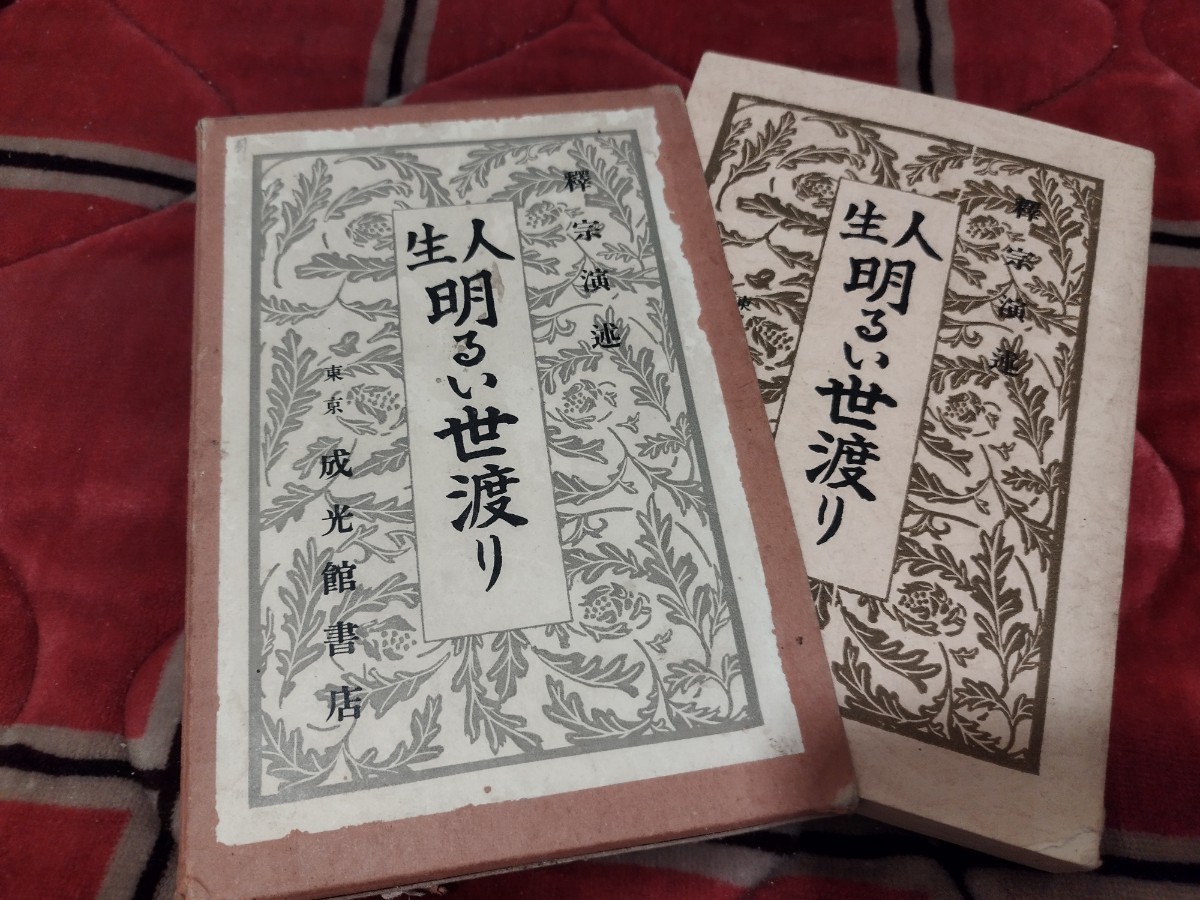 釋宗演述
人生
明るい世渡り
東京 成光館書店
釋宗演述
人生
明るい世渡り
東